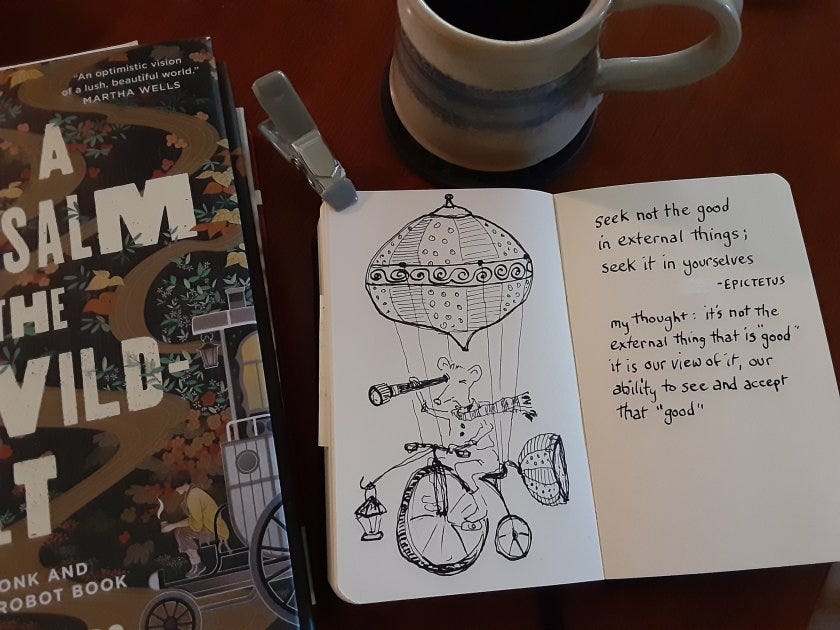 "An optimistic vision
of a lush, beautiful world."
MARTHA WELLS
A
SALM
THE
WILD-
T
ONK AND
ROBOT BOOK
seek not the good
in external things;
seek it in yourselves
-EPICTETUS
my thought: it's not the
external thing that is "good"
it is our view of it, our
ability to see and accept
that "good"